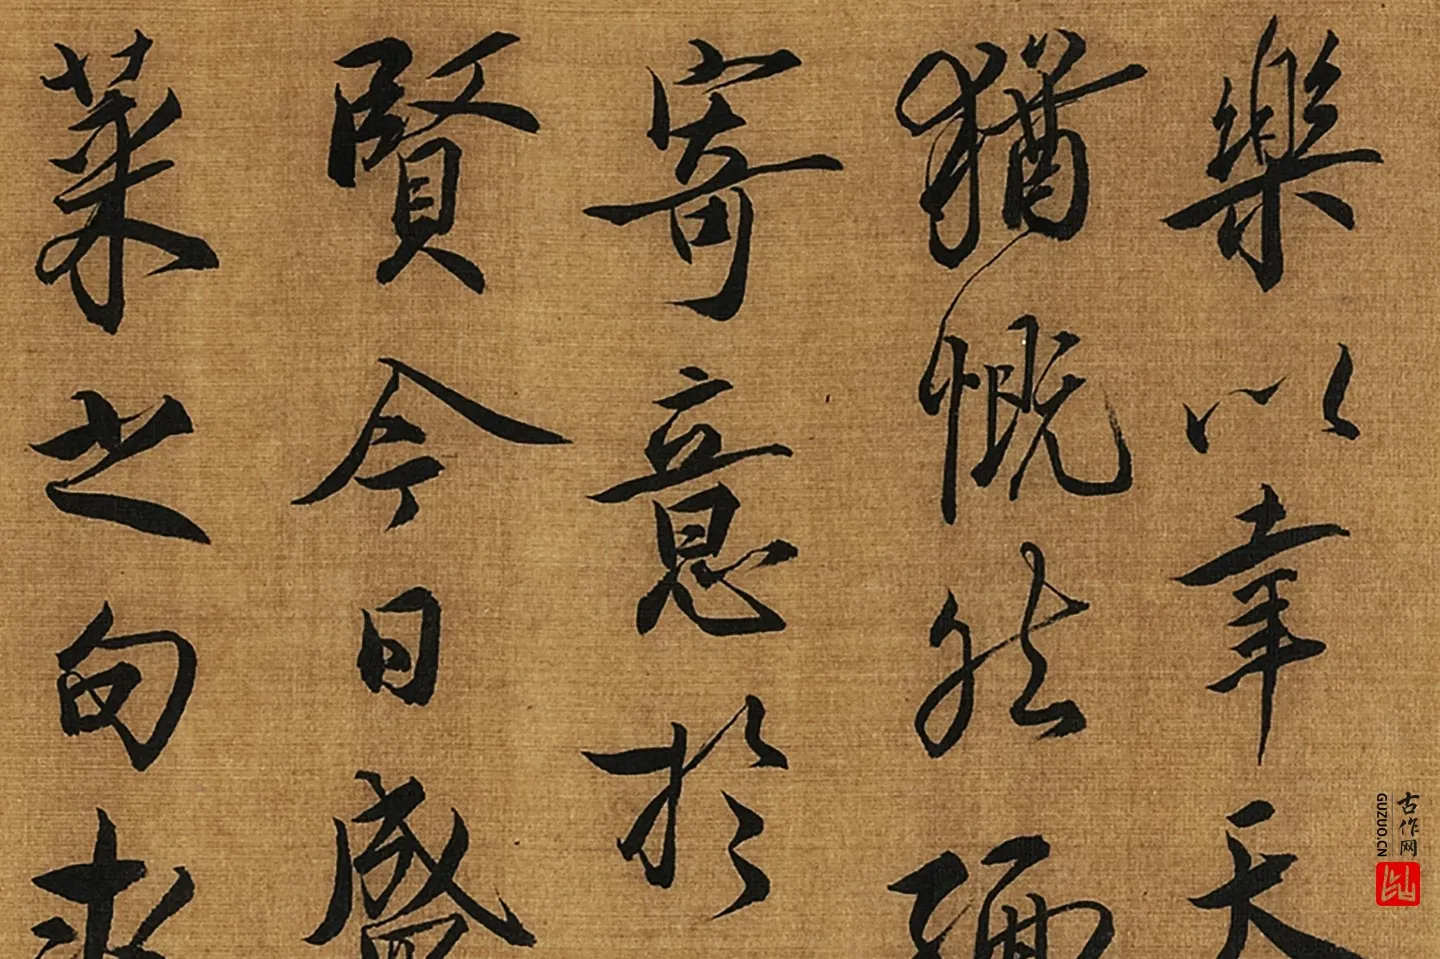 樂以幸天
猶慨然彌
寄意於
賢今日盛
菜之句求
古作网
GUZUO.CN